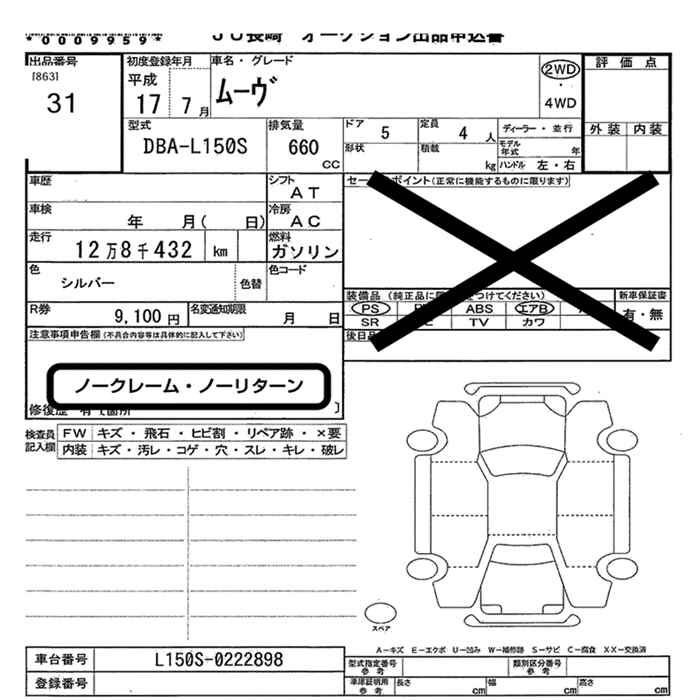 *0009959*
JU長崎 オークション出品申込書
出品番号
[863]
31
初度登録年月
平成
17 7月
車名・グレード
ムーヴ
2WD
・
4WD
評価点
外装 内装
型式
DBA-L150S
排気量
660
CC
ドア 5
定員 4 人
ディーラー・並行
形状
積載
kg
モデル年式 年
ハンドル 左・右
車歴
シフト
AT
車検
年 月( 日)
冷房
AC
走行
12万8千432 km
燃料
ガソリン
色
シルバー
色替
色コード
R券
9,100円
名変通知期限
月 日
セー ポイント(正常に機能するものに限ります)
装備品(純正品に つけてください)
新車保証書
PS ABS エアB
SR TV カワ
有・無
後日
注意事項申告欄(不具合内容等は具体的に記入して下さい)
ノークレーム・ノーリターン
修復歴 有[箇所 ]
検査員記入欄
FW キズ・飛石・ヒビ割・リペア跡・×要
内装 キズ・汚レ・コゲ・穴・スレ・キレ・破レ
スペア
A-キズ E-エクボ U-凹み W-補修跡 S-サビ C-腐食 XX-交換済
車台番号 L150S-0222898
登録番号
型式指定番号参考
類別区分番号参考
車庫証明用参考
長さ cm
幅 cm
高さ cm